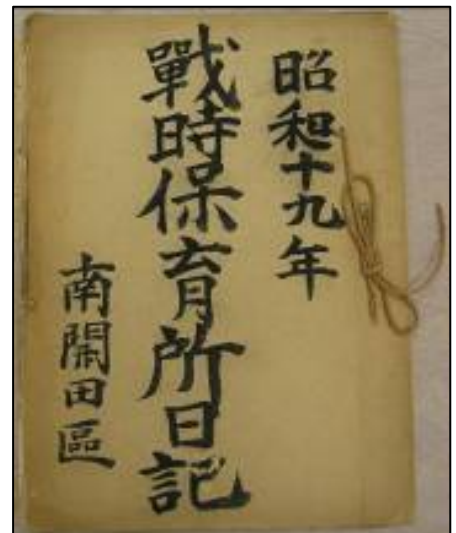 昭和十九年
戰時保育所日記
南開田區